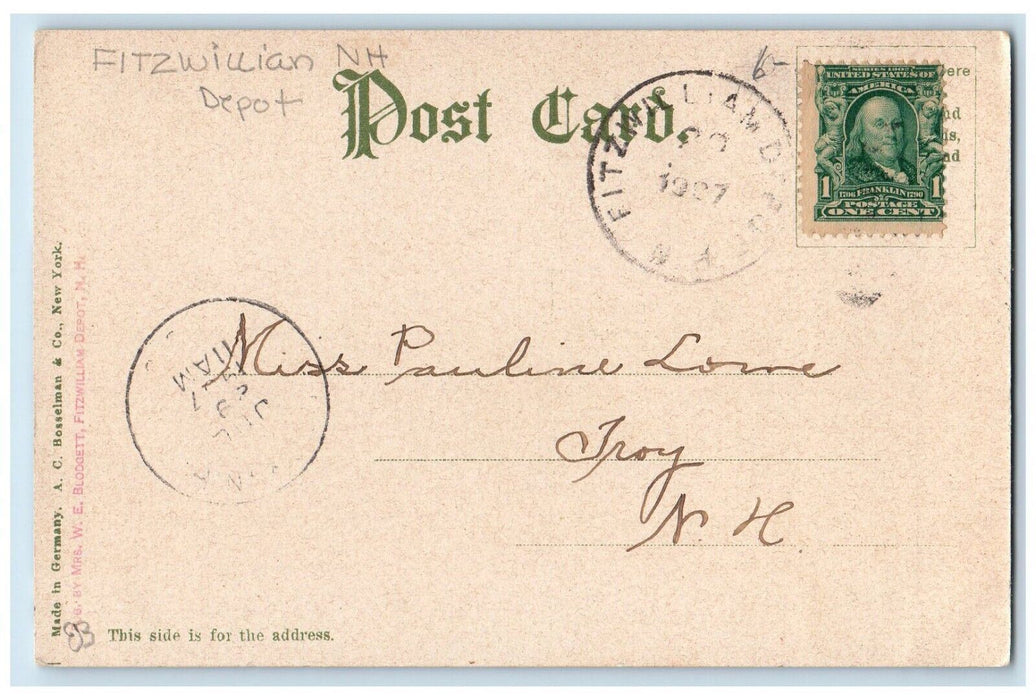 FITZWILLIAN NH
Depot
Post Card.
FITZWILLIAM DEPOT N H
1907
SERIES 1902
UNITED STATES OF
AMERICA
1 1
1706 FRANKLIN 1790
POSTAGE
ONE CENT
ere
nd
ns,
ad
JUL
7
11 AM
N.H.
Miss Pauline Lowe
Troy
N. H.
Made in Germany. A. C. Bosselman & Co., New York.
BY MRS. W. E. BLODGETT, FITZWILLIAM DEPOT, N. H.
This side is for the address.